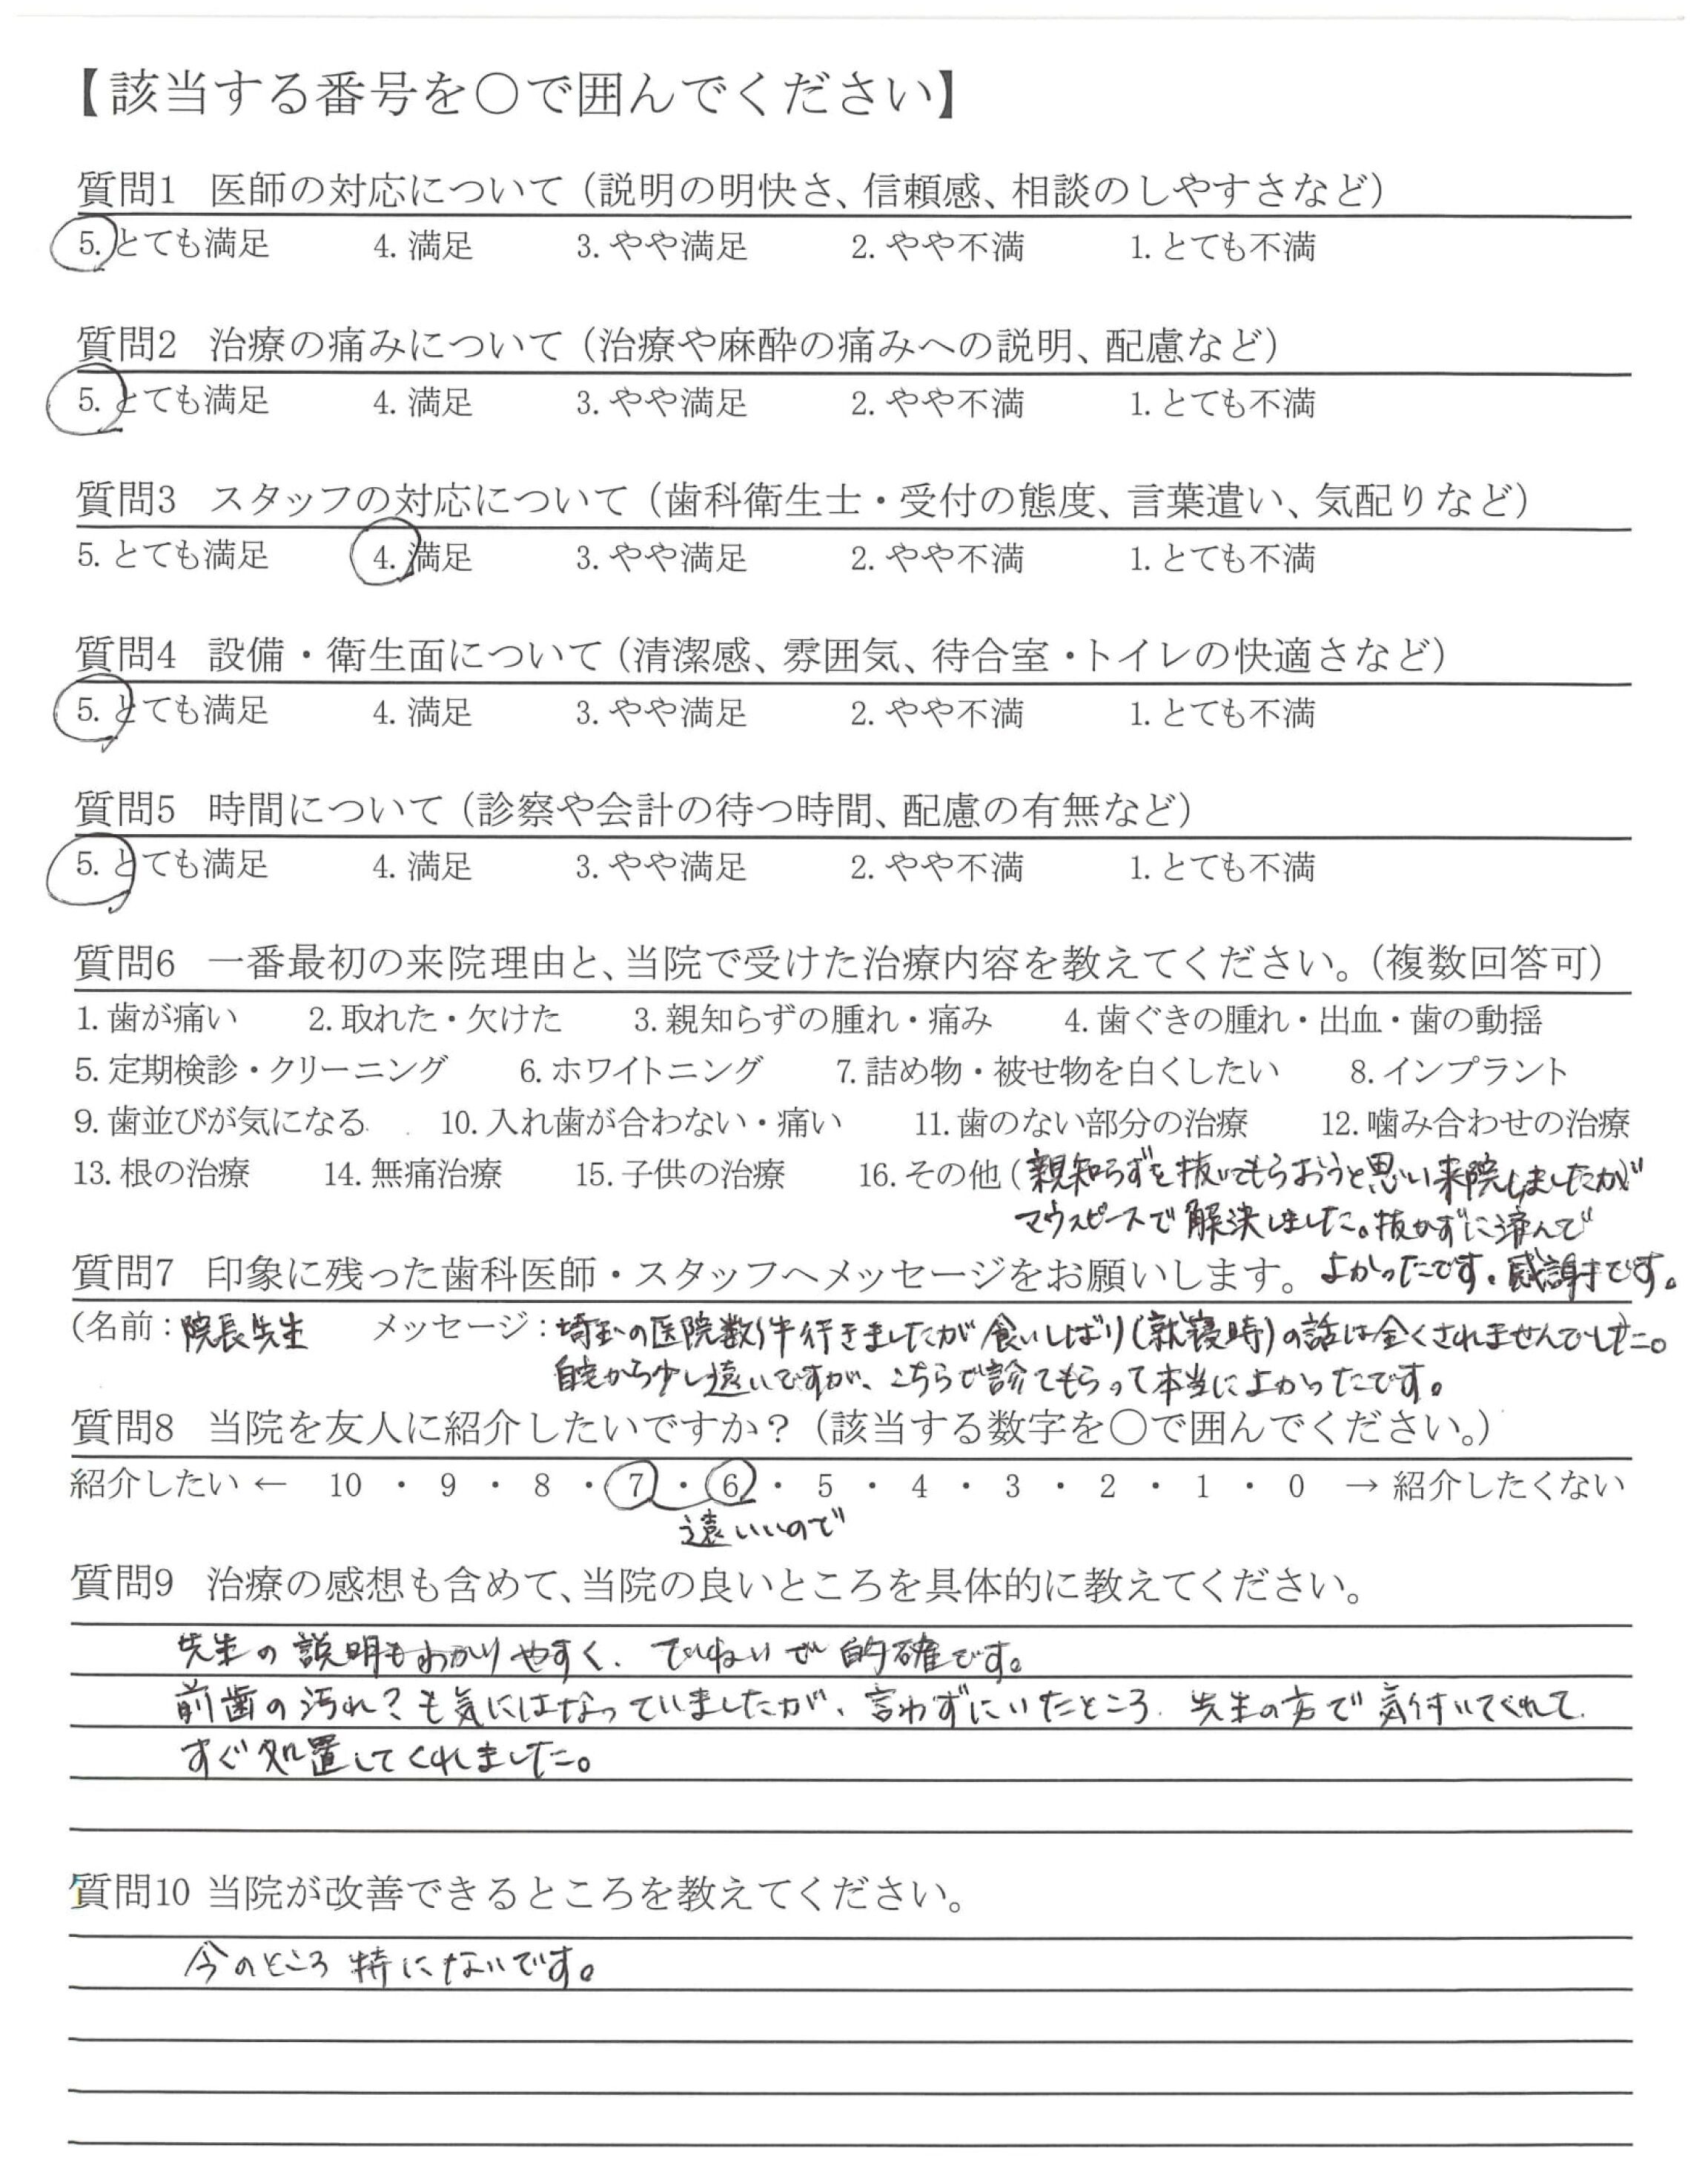 【該当する番号を〇で囲んでください】
質問1 医師の対応について（説明の明快さ、信頼感、相談のしやすさなど）
5. とても満足 4. 満足 3. やや満足 2. やや不満 1. とても不満
質問2 治療の痛みについて（治療や麻酔の痛みへの説明、配慮など）
5. とても満足 4. 満足 3. やや満足 2. やや不満 1. とても不満
質問3 スタッフの対応について（歯科衛生士・受付の態度、言葉遣い、気配りなど）
5. とても満足 4. 満足 3. やや満足 2. やや不満 1. とても不満
質問4 設備・衛生面について（清潔感、雰囲気、待合室・トイレの快適さなど）
5. とても満足 4. 満足 3. やや満足 2. やや不満 1. とても不満
質問5 時間について（診察や会計の待つ時間、配慮の有無など）
5. とても満足 4. 満足 3. やや満足 2. やや不満 1. とても不満
質問6 一番最初の来院理由と、当院で受けた治療内容を教えてください。（複数回答可）
1. 歯が痛い 2. 取れた・欠けた 3. 親知らずの腫れ・痛み 4. 歯ぐきの腫れ・出血・歯の動揺
5. 定期検診・クリーニング 6. ホワイトニング 7. 詰め物・被せ物を白くしたい 8. インプラント
9. 歯並びが気になる 10. 入れ歯が合わない・痛い 11. 歯のない部分の治療 12. 噛み合わせの治療
13. 根の治療 14. 無痛治療 15. 子供の治療 16. その他（親知らずを抜いてもらおうと思い来院しましたが）
マウスピースで解決しました。抜かずに済んで
よかったです。感謝です。
質問7 印象に残った歯科医師・スタッフへメッセージをお願いします。
（名前：院長先生 メッセージ：埼玉の医院数件行きましたが食いしばり（就寝時）の話は全くされませんでした。）
自宅から少し遠いですが、こちらで診てもらって本当によかったです。
質問8 当院を友人に紹介したいですか？（該当する数字を〇で囲んでください。）
紹介したい ← 10 ・ 9 ・ 8 ・ 7 ・ 6 ・ 5 ・ 4 ・ 3 ・ 2 ・ 1 ・ 0 → 紹介したくない
遠いいので
質問9 治療の感想も含めて、当院の良いところを具体的に教えてください。
先生の説明もわかりやすく、ていねいで的確です。
前歯の汚れ？も気にはなっていましたが、言わずにいたところ、先生の方で気付いてくれて、
すぐ処置してくれました。
質問10 当院が改善できるところを教えてください。
今のところ特にないです。